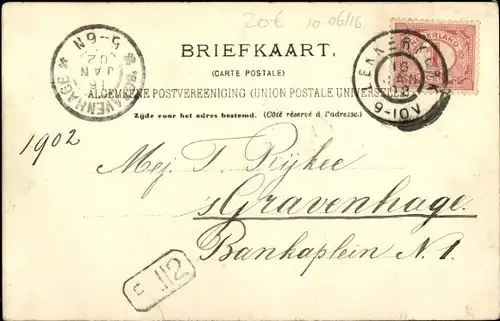 20€ 10-06/16
BRIEFKAART.
(CARTE POSTALE)
ALGEMEENE POSTVEREENIGING (UNION POSTALE UNIVERSELLE)
Zijde voor het adres bestemd. (Côté réservé à l'adresse.)
5-6N
16
JAN
02
'SGRAVENHAGE
9-10V
NEDERLAND
1902
Mej T. Rijkee
s'Gravenhage.
Bankaplein N. 1.
S 112